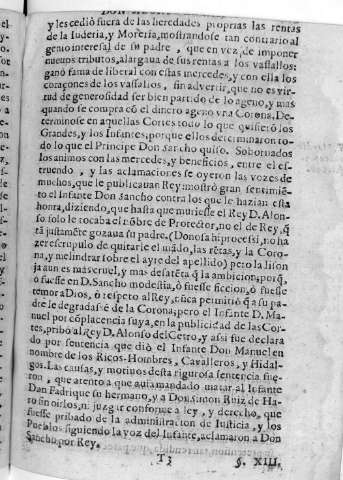 y les cediò fuera de las heredades proprias las rentas
de la Iuderia, y Moreria, mostrandose tan contrario al
genio interesal de su padre, que en vez de imponer
nueuos tributos, alargaua de sus rentas a los vassallos:
ganò fama de liberal con estas mercedes, y con ella los
coraçones de los vassallos, sin advertir, que no es vir-
tud de generosidad ser bien partido de lo ageno, y mas
quando se compra cõ el dinero ageno vna Corona. De-
terminose en aquellas Cortes todo lo que quisierō los
Grandes, y los Infantes; porque ellos determinaron to-
do lo que el Principe Don Sancho quiso. Sobornados
los animos con las mercedes, y beneficios, entre el es-
truendo, y las aclamaciones se oyeron las vozes de
muchos, que le publicauan Rey mostrò gran sentimiē-
to el Infante Don Sancho contra los que le hazian esta
honra, diziendo, que hasta que muriesse el Rey D. Alon-
so solo le tocaba el nõbre de Protector, no el de Rey, q̃
tã justamẽte gozaua su padre. (Donosa hipocresi, no ha
zer escrupulo de quitarle el mãdo, las rẽtas, y la Coro-
na, y melindrar sobre el ayre del apellido) pero la lison
ja aun es mas cruel, y mas desatẽta q̃ la ambicion; porq̃,
ò fuesse en D. Sancho modestia, ò fuesse ficcion, ò fuesse
temor a Dios, ò respeto al Rey, nũca permitiò q̃ a su pa-
dre le degradassẽ de la Corona; pero el Infãte D. Ma-
nuel por cõplacencia suya, en la publicidad de las Cor-
tes, pribò al Rey D. Alonso del Cetro, y assi fue declara
do por sentencia que diò el Infante Don Manuel en
nombre de los Ricos-Hombres, Cavalleros, y Hidal-
gos. Las causas, y motiuos desta rigurosa sentencia fue-
ron, que atento a que auia mandado matar al Infante
Dan Fadrique su hermano, y a Don Simon Ruiz de Ha-
ro sin oirlos, ni juzgar conforme a ley, y derecho, que
fuesse pribado de la administracion de Iusticia, y los
Pueblos siguiendo la voz del Infante, aclamaron a Don
Sancho por Rey.
T3 §. XIII.